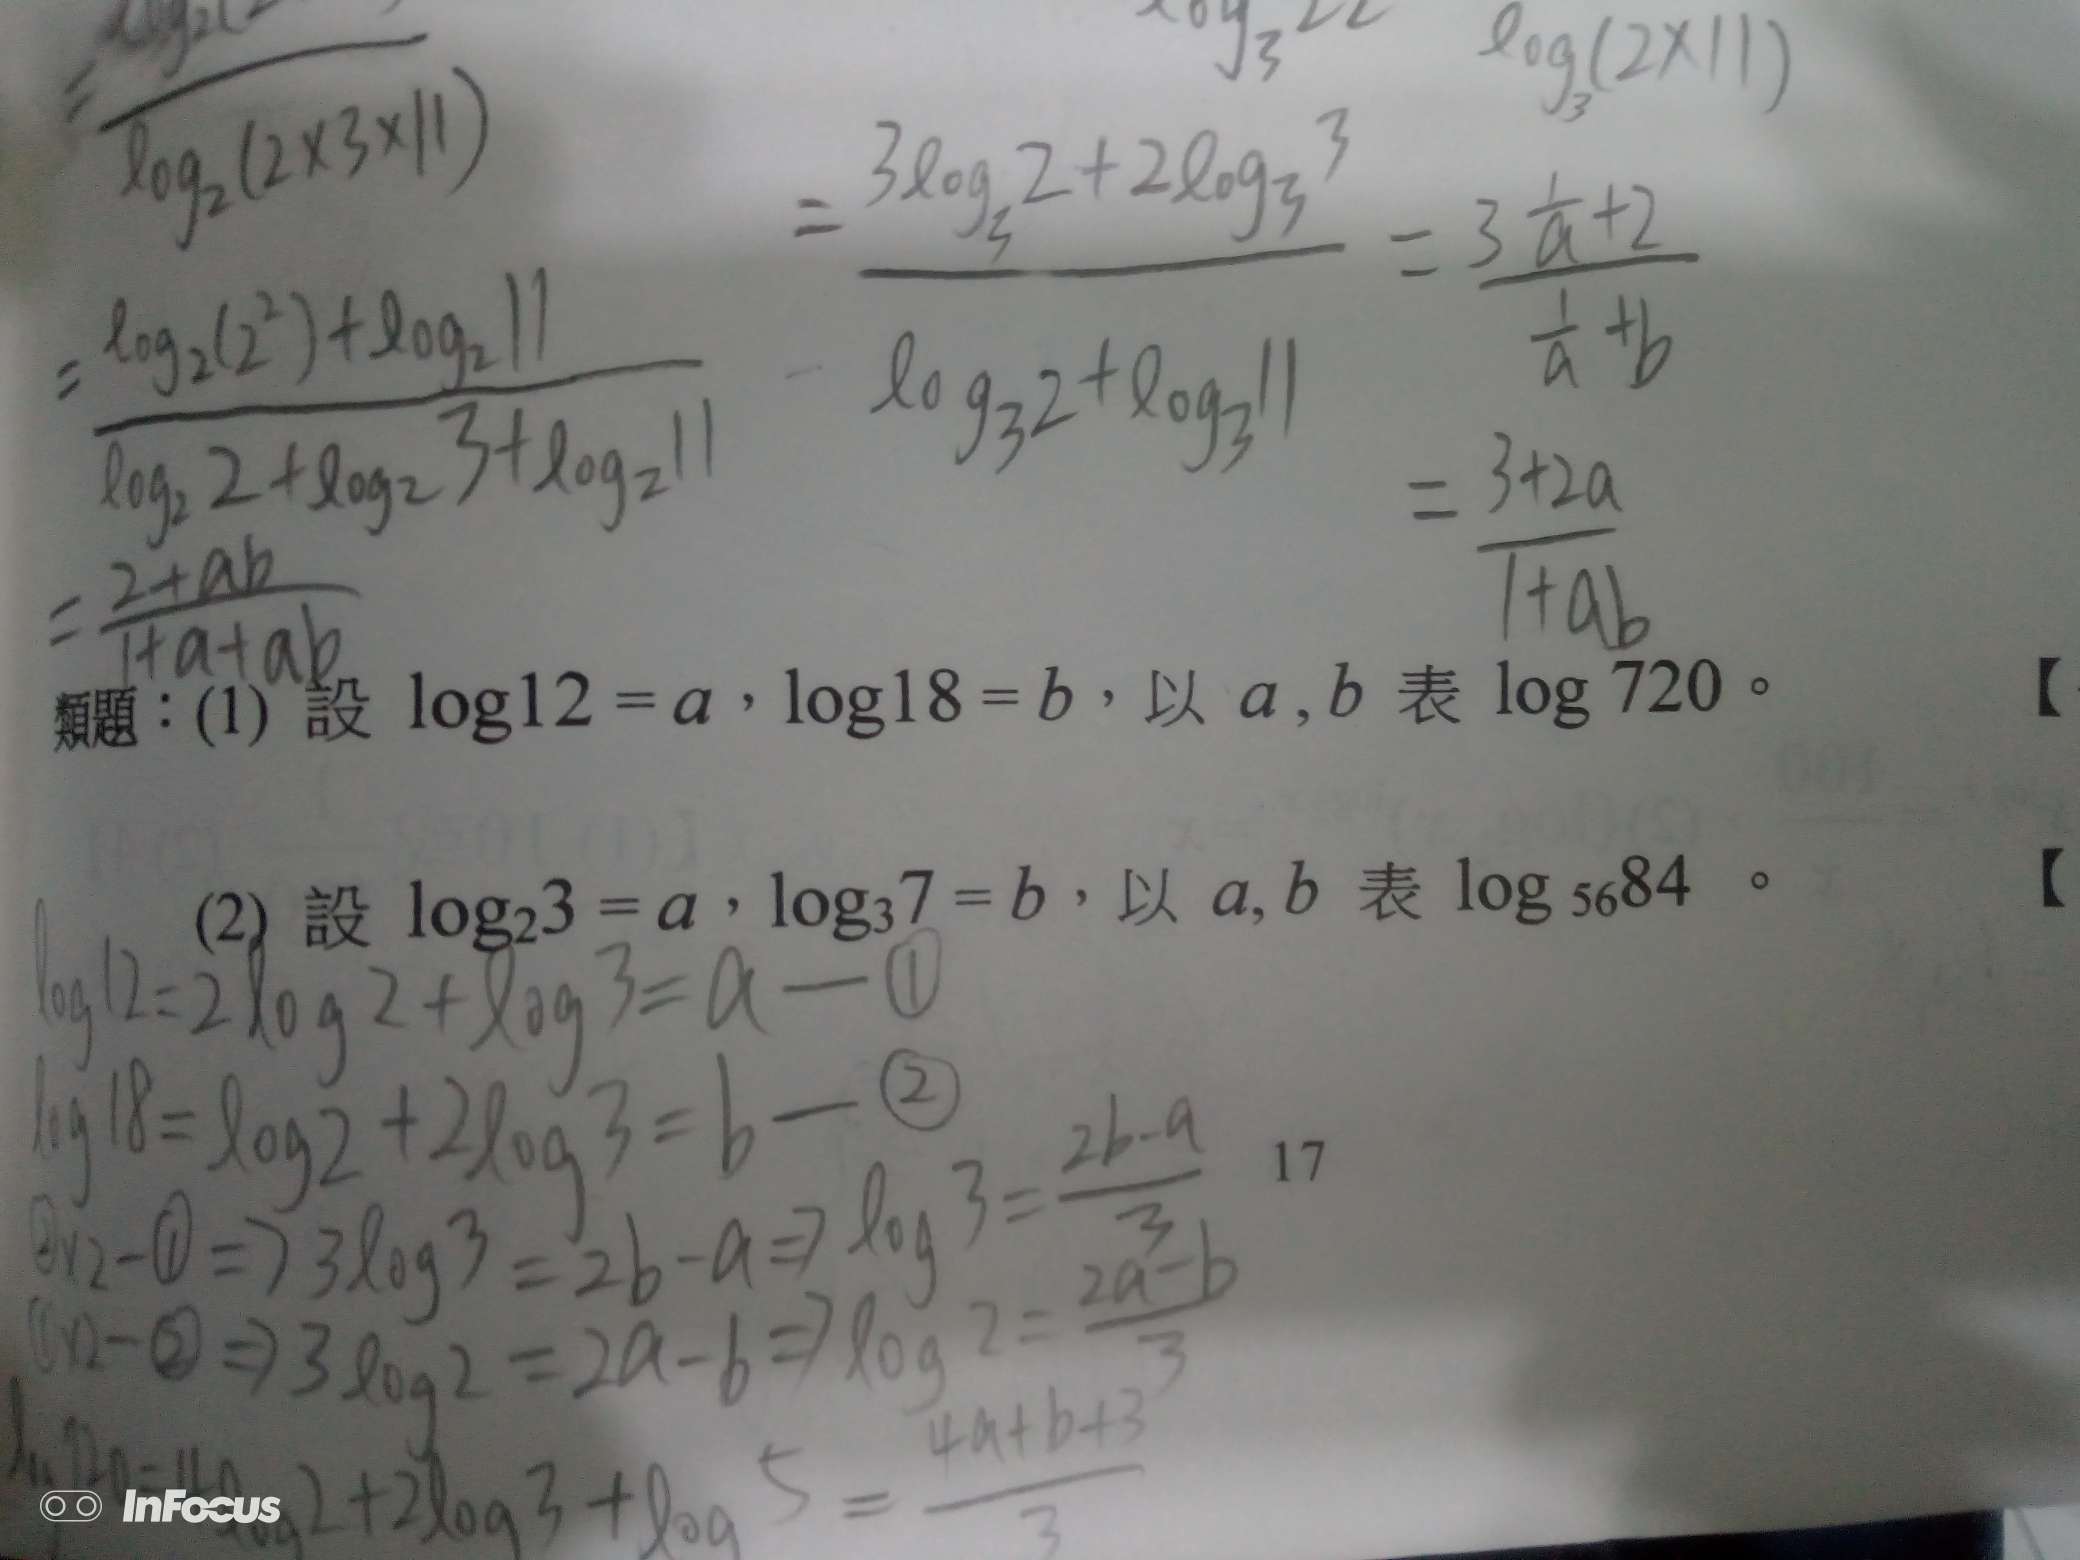 log₃22
log₃(2×11)
= log₂(2
log₂(2×3×11)
= 3log₃2+2log₃3 / log₃2+log₃11 = 3 1/a +2 / 1/a +b
= log₂(2²)+log₂11 / log₂2+log₂3+log₂11
= 3+2a / 1+ab
= 2+ab / 1+a+ab
類題：(1) 設 log12 = a，log18 = b，以 a , b 表 log 720。 【
(2) 設 log₂3 = a，log₃7 = b，以 a, b 表 log ₅₆84 。 【
log12=2log2+log3=a—①
log18=log2+2log3=b—②
②×2-①=>3log3=2b-a=>log3= 2b-a / 3
①×2-②=>3log2=2a-b=>log2= 2a-b / 3
log2+2log3+log5= 4a+b+3 / 3
17
InFocus